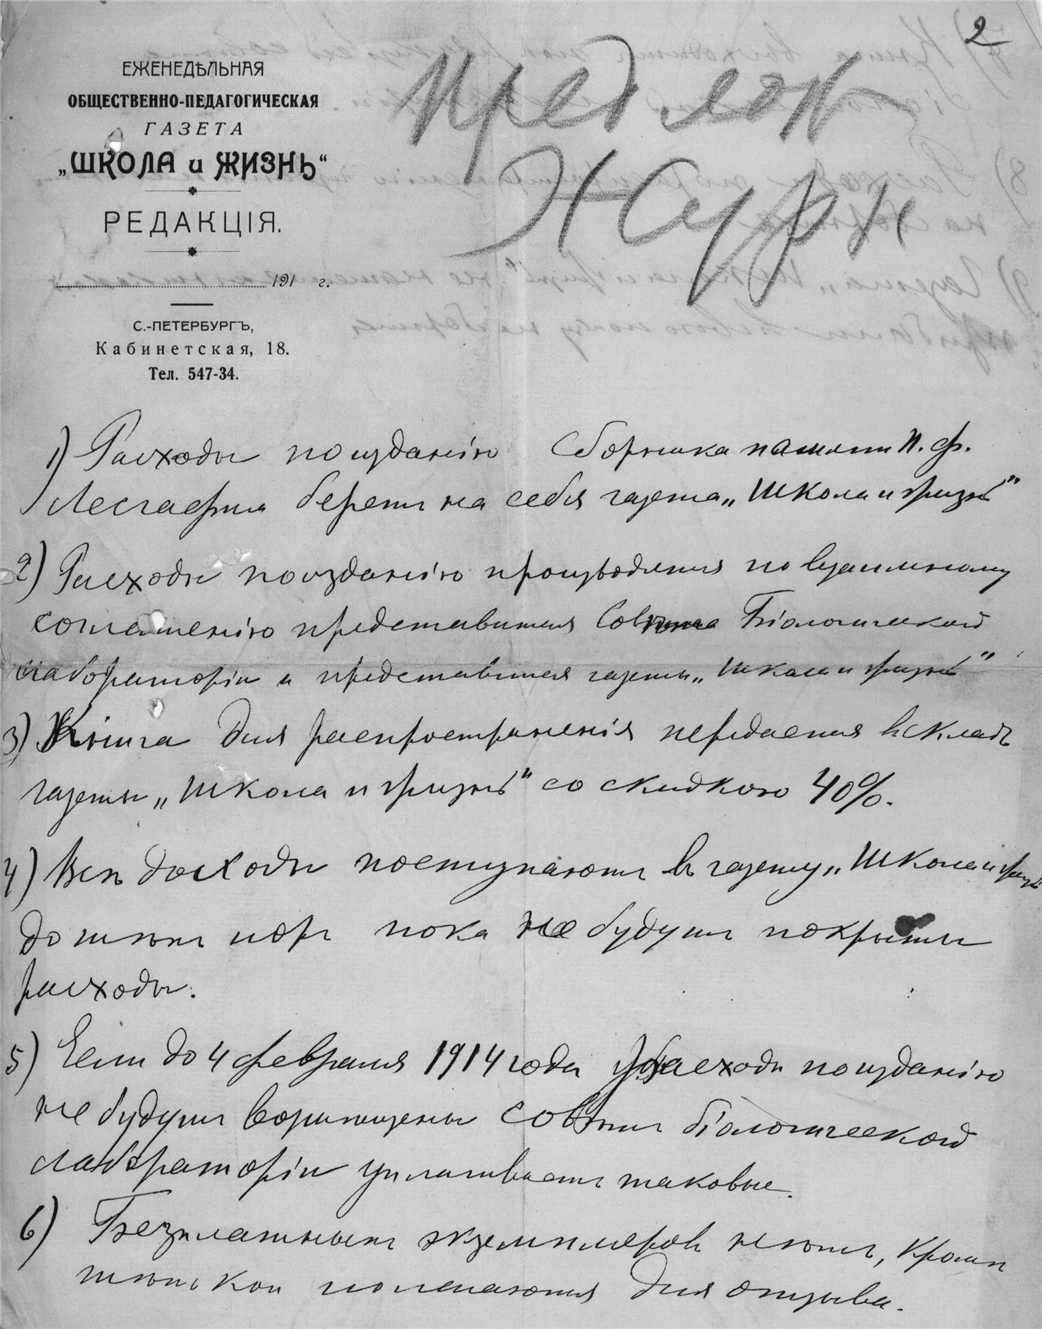 2
ЕЖЕНЕДѢЛЬНАЯ
ОБЩЕСТВЕННО-ПЕДАГОГИЧЕСКАЯ
ГАЗЕТА
„ШКОЛА и ЖИЗНЬ“
РЕДАКЦІЯ.
191 г.
С.-ПЕТЕРБУРГЪ,
Кабинетская, 18.
Тел. 547-34.
Предлож
Журн
1) Расходы по изданію Сборника памяти П. Ф.
Лесгафта беретъ на себя газета „Школа и жизнь"
2) Расходы по изданію производятся по взаимному
соглашенію представителя Совѣта Біологической
лабораторіи и представителя газеты „Школа и жизнь"
3) Книга для распространенія передается въ складъ
газеты „Школа и жизнь" со скидкою 40%.
4) Всѣ доходы поступаютъ въ газету „Школа и жизнь
до тѣхъ поръ пока не будутъ покрыты
расходы.
5) Если до 4 февраля 1914 года расходы по изданію
не будутъ возмѣщены совѣтъ біологической
лабораторіи уплачиваетъ таковые.
6) Безплатныхъ экземпляровъ нѣтъ, кромѣ
тѣхъ кои посылаются для отзыва.